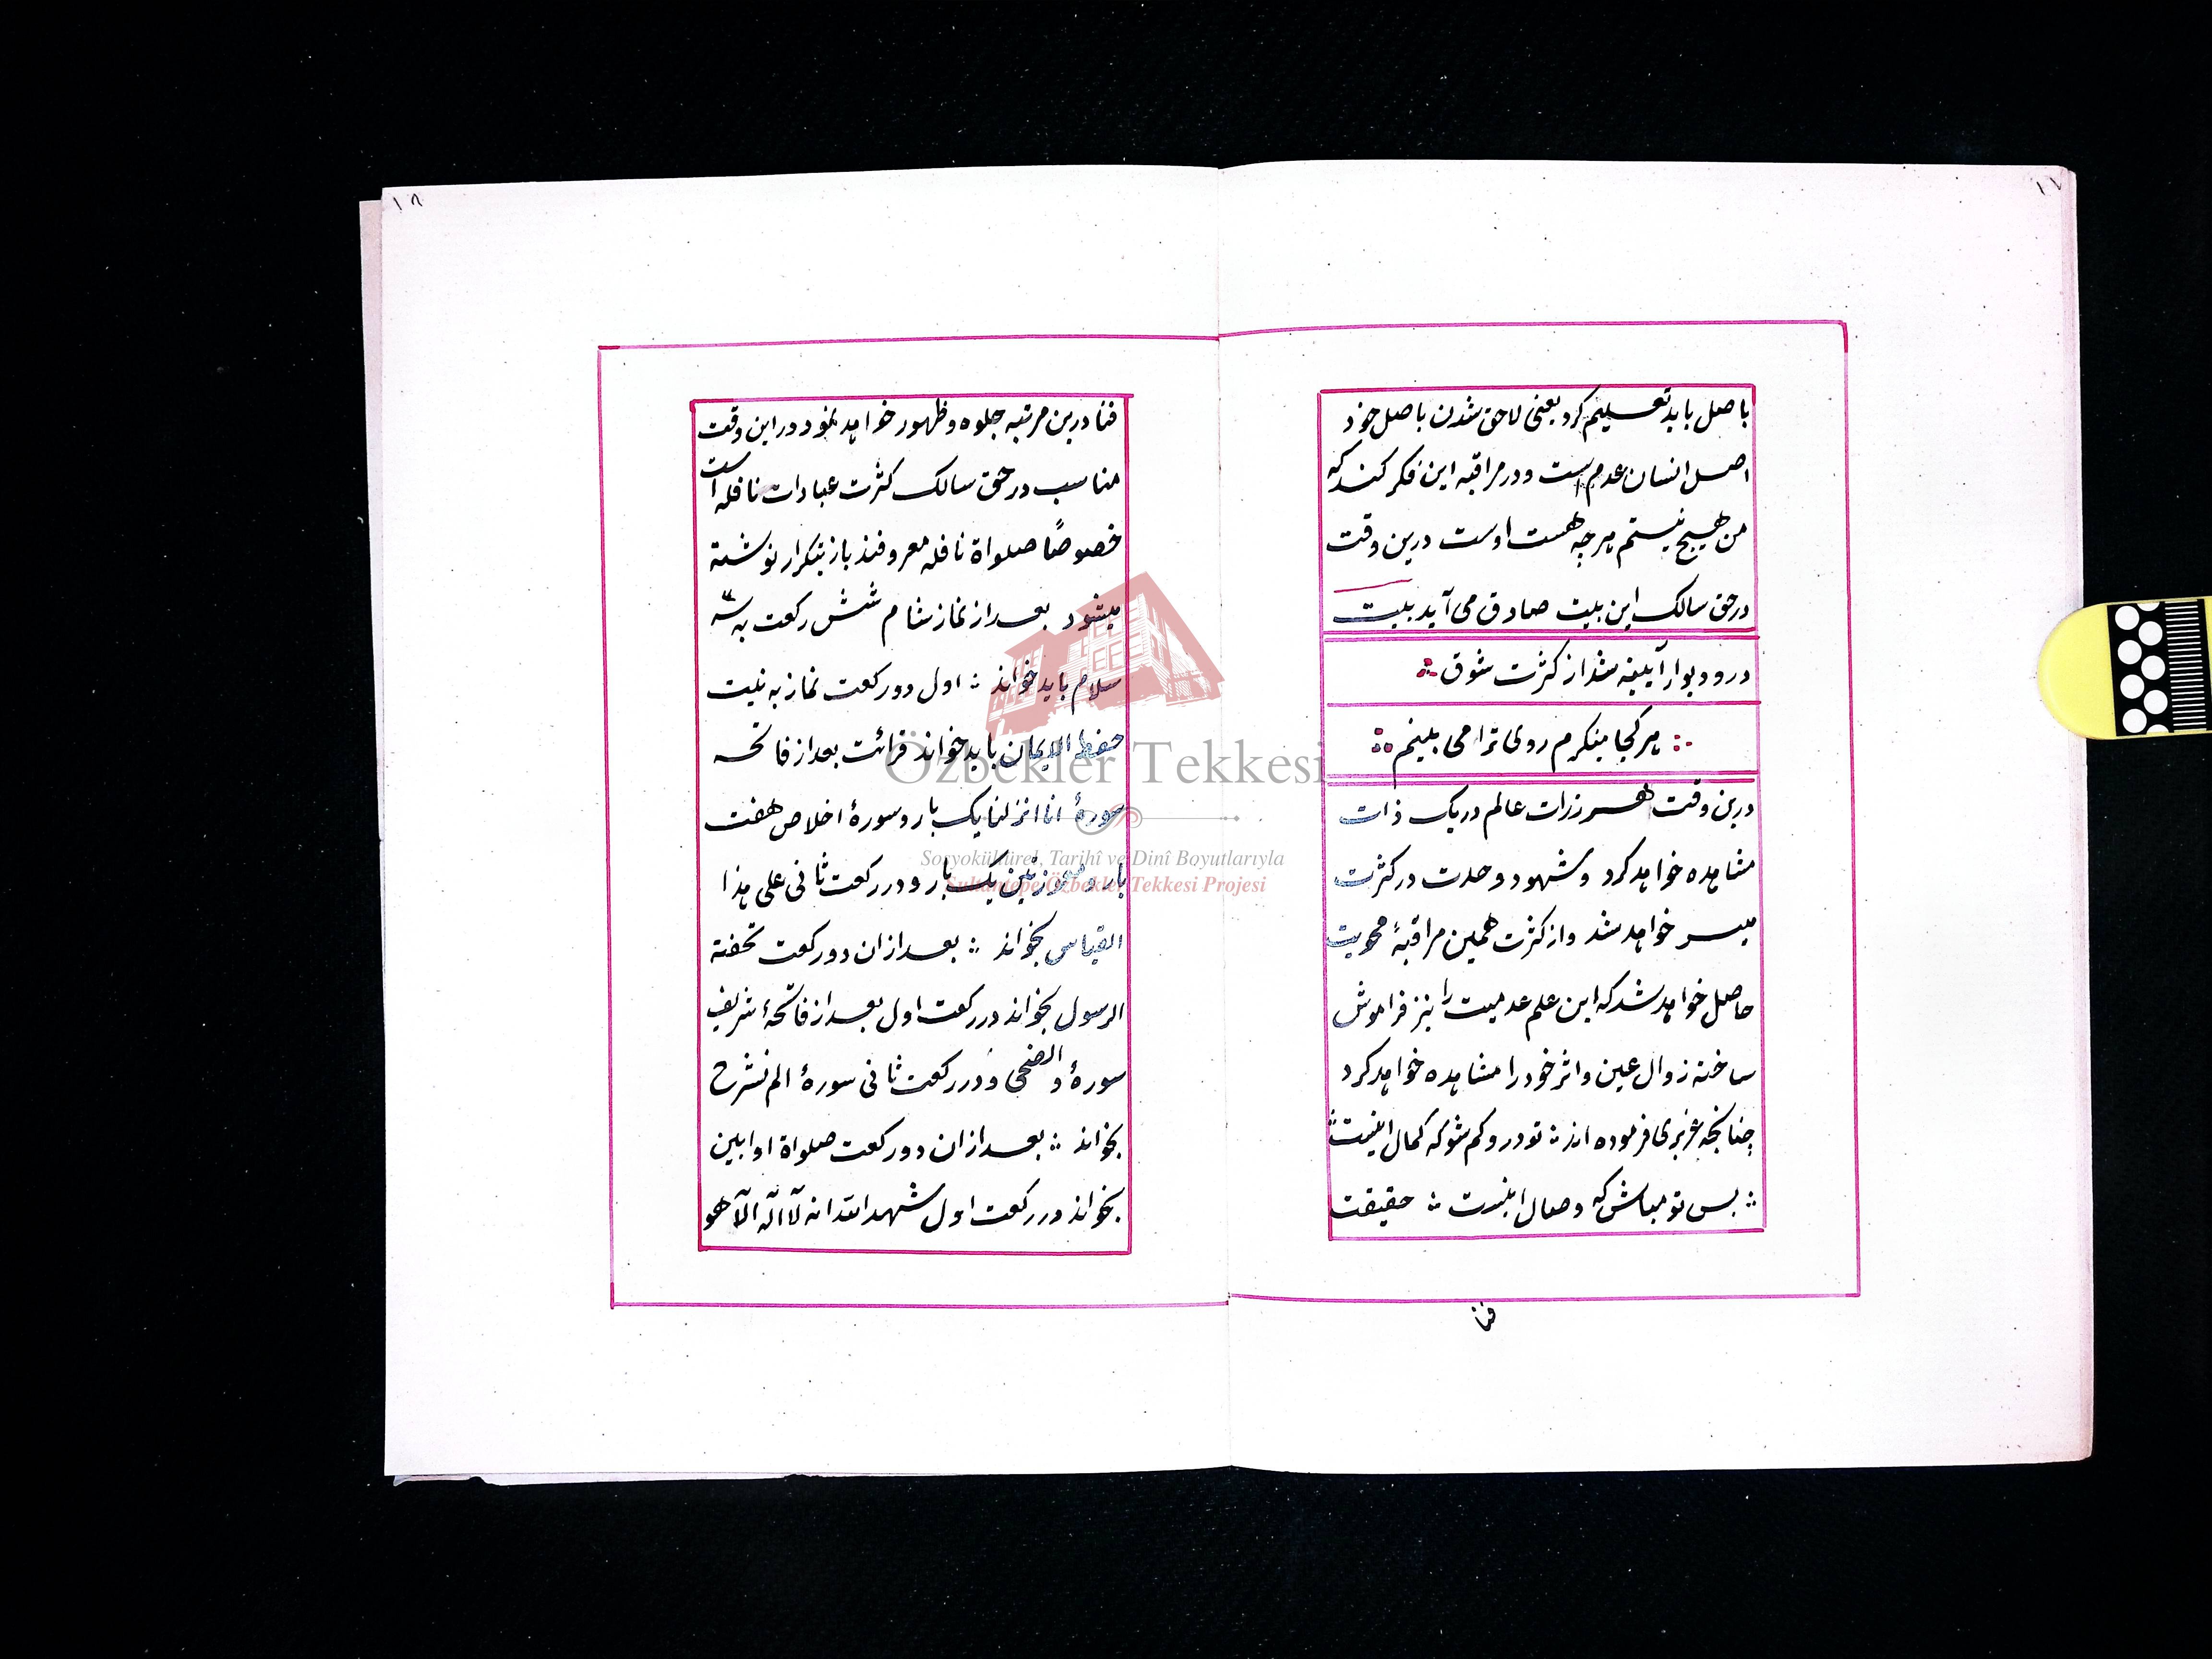 ١٧
باصل باید تعلیم کرد یعنی لاحق شدن باصل خود
اصل انسان عدم است و در مراقبه این فکر کند که
من هیچ نیستم هرچه هست اوست درین وقت
در حق سالک این بیت صادق می آید بیت
در و دیوار آیینه شد از کثرت شوق
هر کجا مینکرم روی ترا می بینم
درین وقت هر زرات عالم در یک ذات
مشاهده خواهد کرد و شهود وحدت در کثرت
میسر خواهد شد و از کثرت همین مراقبۀ محویت
حاصل خواهد شد که این علم عدمیت را نیز فراموش
ساخته زوال عین و اثر خود را مشاهده خواهد کرد
چنانچه عزیزی فرموده اند ∴ تو در و کم شو که کمال اینست ∴
∴ بس تو مباش که وصال اینست ∴ حقیقت
فنا
١٨
فنا درین مرتبه جلوه و ظهور خواهد نمود در این وقت
مناسب در حق سالک کثرت عبادات نافله است
خصوصًا صلواة نافله معروفند باز بتکرار نوشته
میشود بعد از نماز شام شش رکعت به سه
سلام باید خواند ∴ اول دو رکعت نماز به نیت
حفظ الایمان باید خواند قرائت بعد از فاتحه
سورۀ انا انزلنا یک بار و سورۀ اخلاص هفت
بار و معوزتین یک بار و در رکعت ثانی علی هذا
القیاس بخواند ∴ بعد از ان دو رکعت تحفته
الرسول بخواند در رکعت اول بعد از فاتحۀ شریف
سورۀ والضحی و در رکعت ثانی سورۀ الم نشرح
بخواند ∴ بعد از ان دو رکعت صلواة اوابین
بخواند در رکعت اول شهد الله انه لآ اله الآ هو
Özbekler Tekkesi
Sosyokültürel, Tarihî ve Dinî Boyutlarıyla
Sultantepe Özbekler Tekkesi Projesi